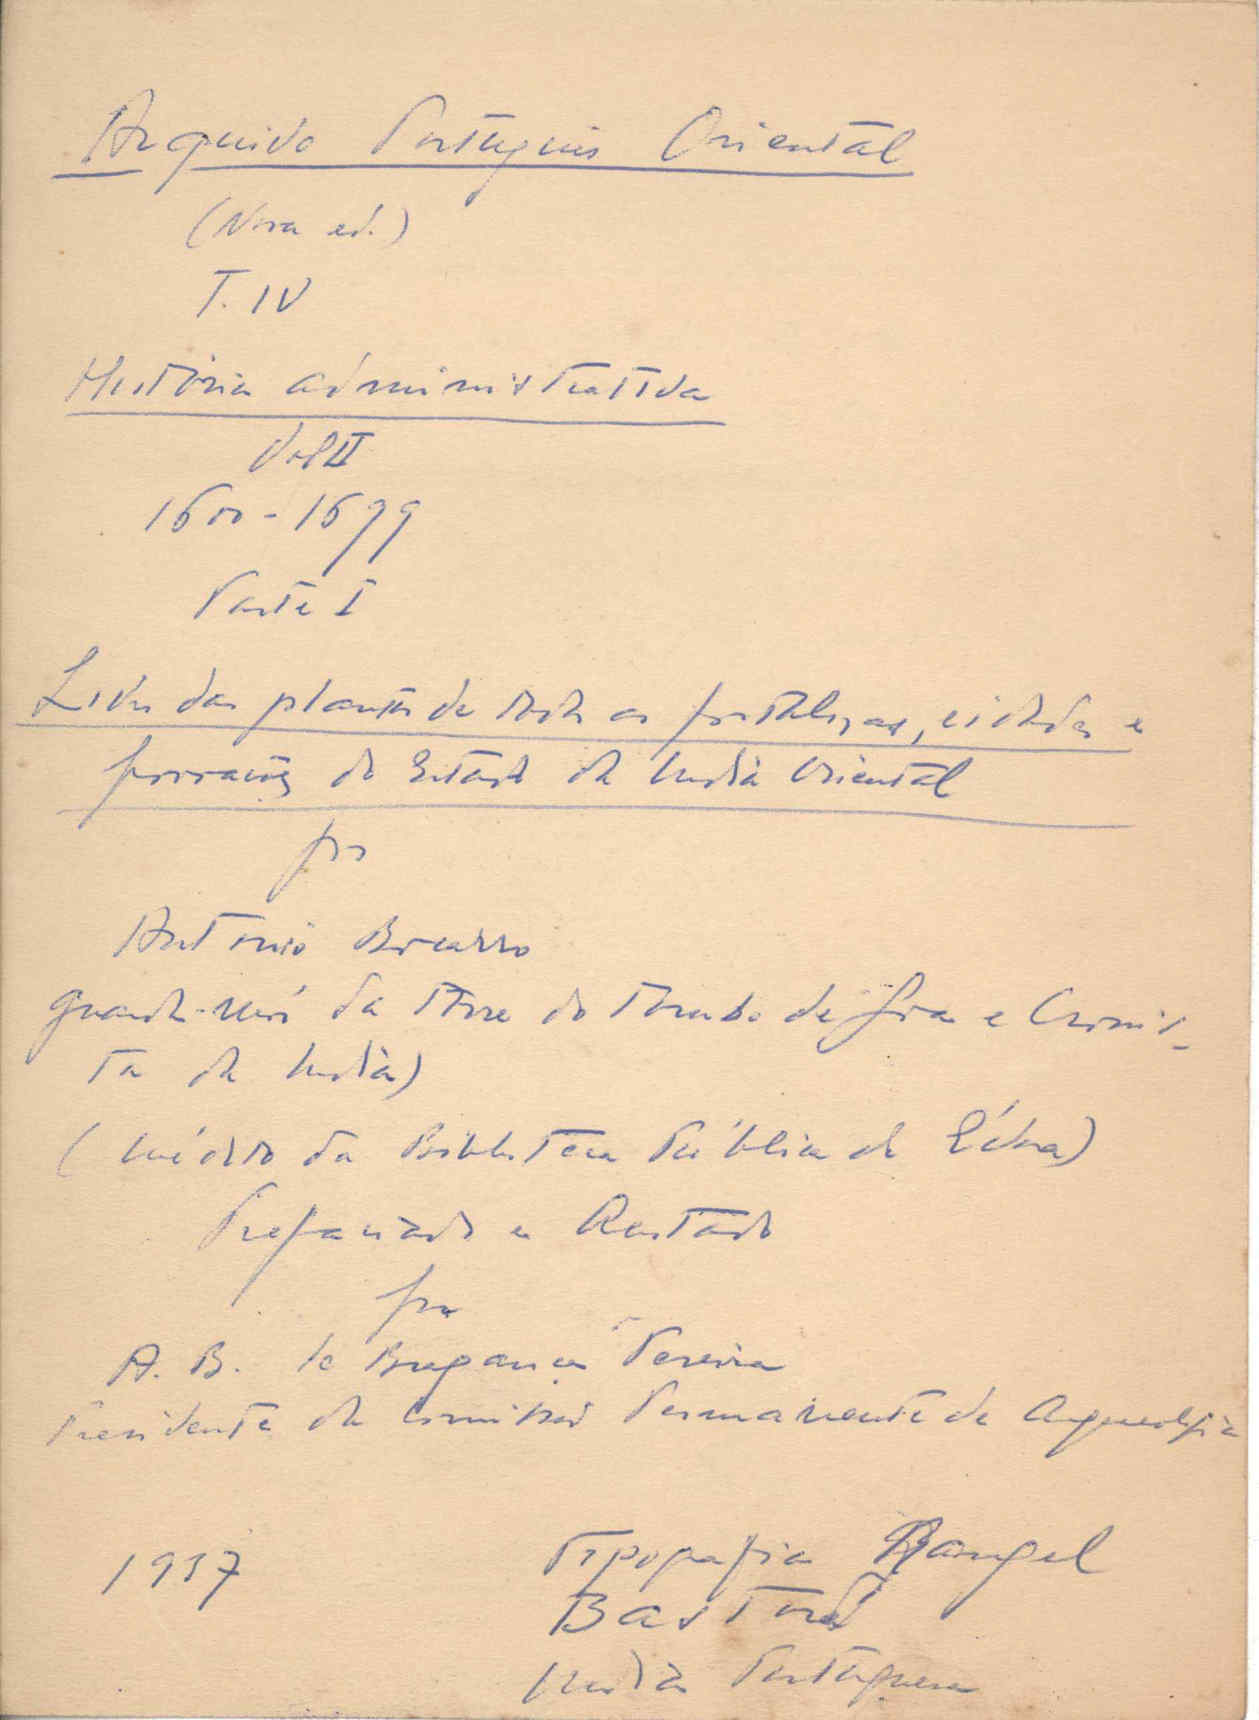 Arquivo Português Oriental
(Nova ed.)
T. IV
História administrativa
Vol II
1600-1699
Parte I
Livro das plantas de todas as fortalezas, cidades e
povoações do Estado da India Oriental
por
António Bocarro
guarda-mór da Torre do Tombo de Goa e Cronis-
ta da India)
(inédito da Biblioteca Pública de Évora)
Prefaciado e
por
A. B. de Bragança Pereira
Presidente da Comissão Permanente de Arqueologia
1937
Tipografia Rangel
Bastorá
India Portuguesa